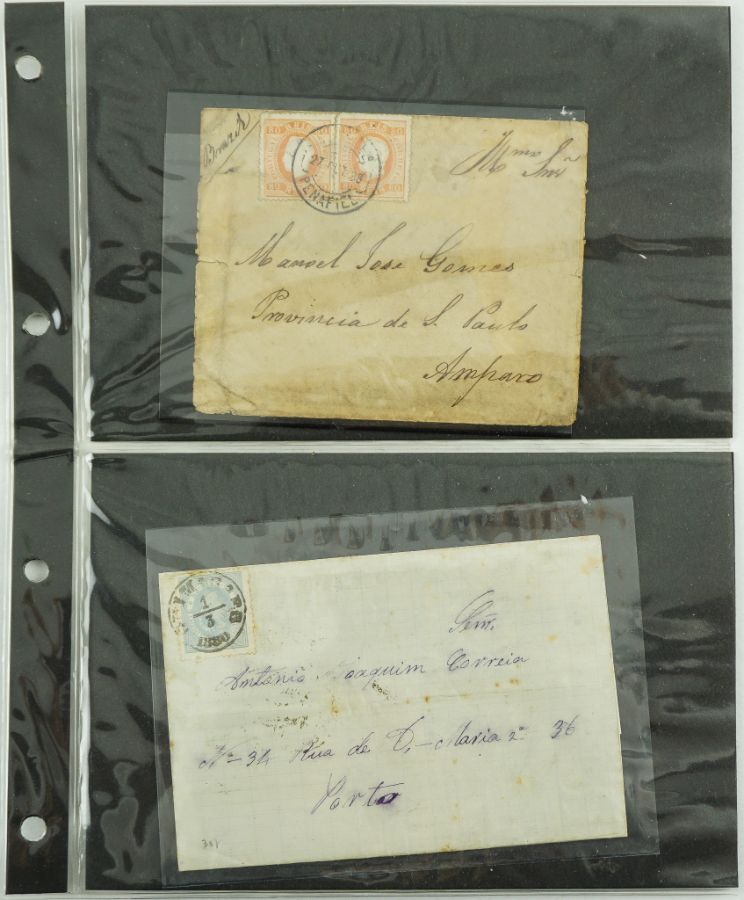 Brazil
80 80
27
PENAFIEL
Manoel Jose Gomes
Provincia de S. Paulo
Amparo
1
3
1880
Antonio Joaquim Correia
Nº 34 Rua de D. Maria 2ª 36
Porto